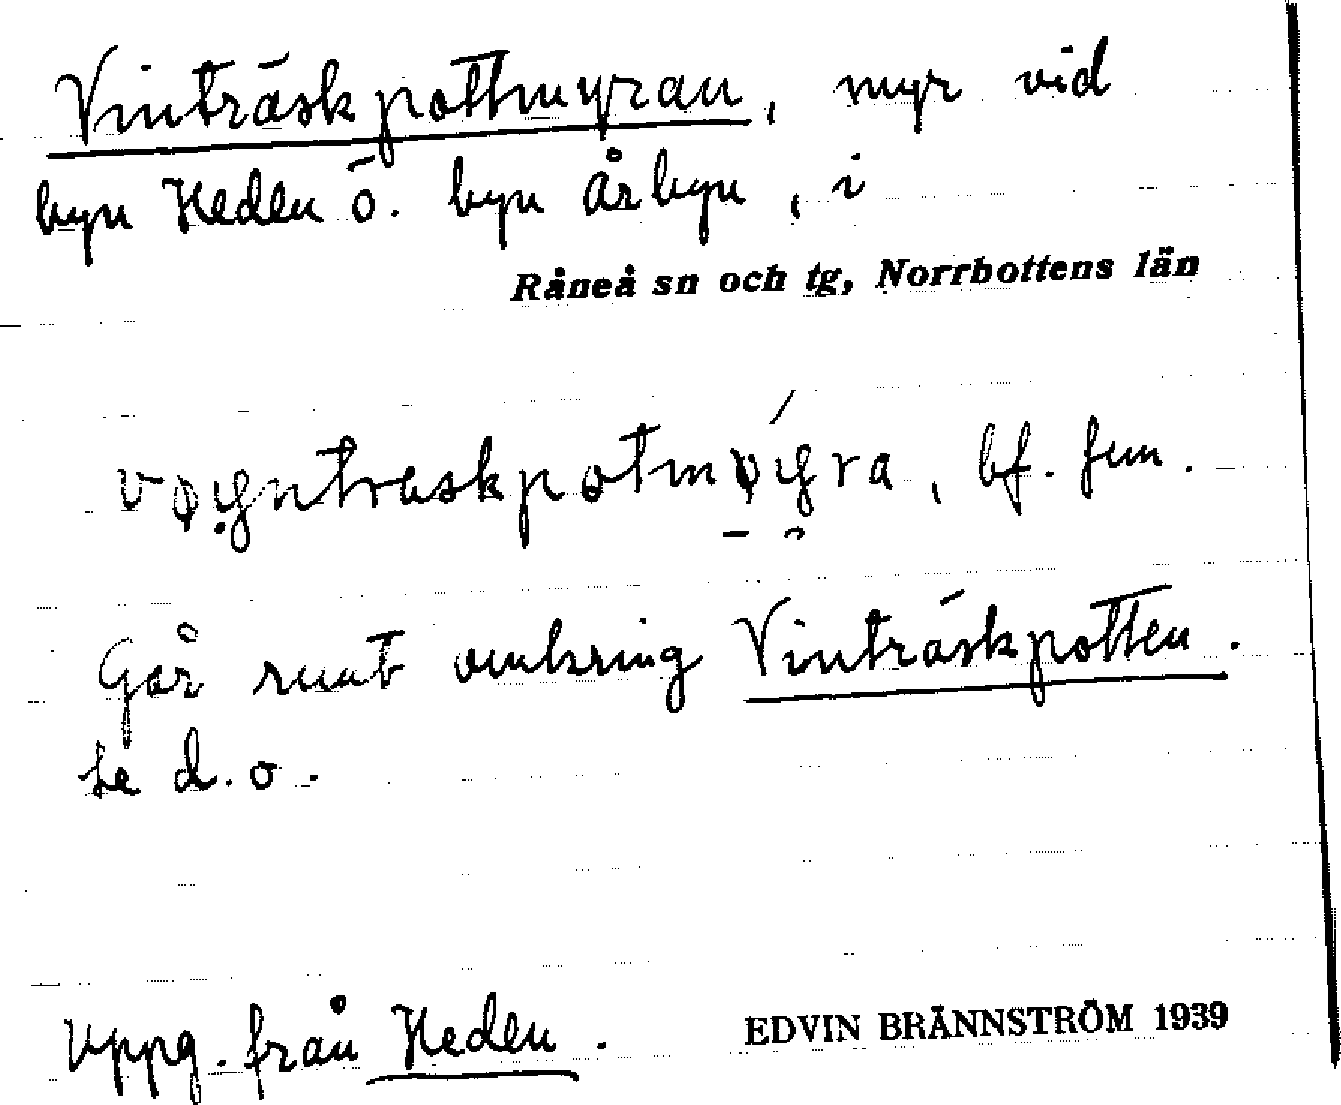 Vinträskpottmyran, myr vid
byn Heden ö. byn Årbyn, i
Råneå sn och tg, Norrbottens län
bf. fem.
Går runt omkring Vinträskpotten.
se d.o.
Uppg. från Heden.
EDVIN BRÄNNSTRÖM 1939